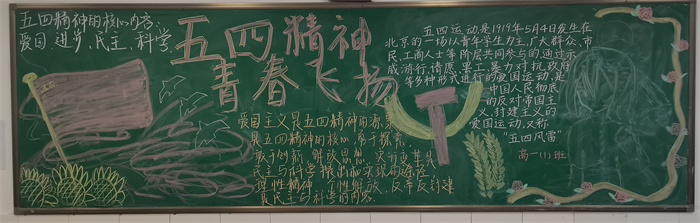 五四精神的核心内容：
爱国、进步、民主、科学
五四精神
青春飞扬
爱国主义是五四精神的源泉
是五四精神的核心，勇于探索、
敢于创新、解放思想、实行变革
民主与科学提出和实现的途径
理性精神、个性解放、反帝反封建
是民主与科学的内容。
五四运动是1919年5月4日发生在
北京的一场以青年学生为主，广大群众、市
民、工商人士等阶层共同参与的，通过示
威游行、请愿、罢工、暴力对抗政府
等多种形式进行的爱国运动，是
中国人民彻底
的反对帝国主
义、封建主义的
爱国运动，又称
“五四风雷”
高一(1)班